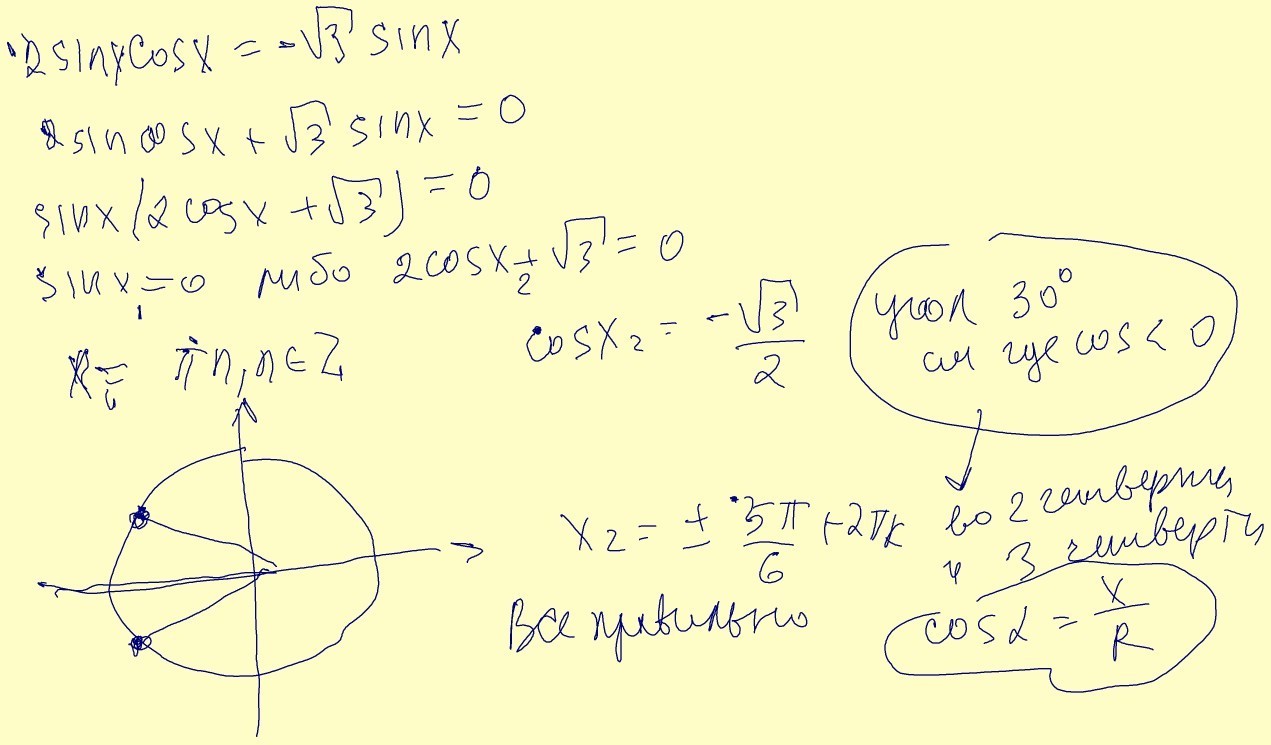 2sinxcosx = -√3 sinx
2sincosx + √3 sinx = 0
sinx(2cosx + √3) = 0
sinx₁ = 0 либо 2cosx₂ + √3 = 0
cosx₂ = -√3/2
x₁ = πn, n ∈ Z
угол 30°
см где cos < 0
x₂ = ± 5π/6 + 2πk
во 2 четверти
и 3 четверти
Все правильно
cosα = x/R